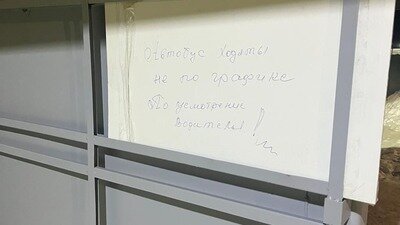 Автобус Ходяты
не по графике
По усмотрение
водителя!